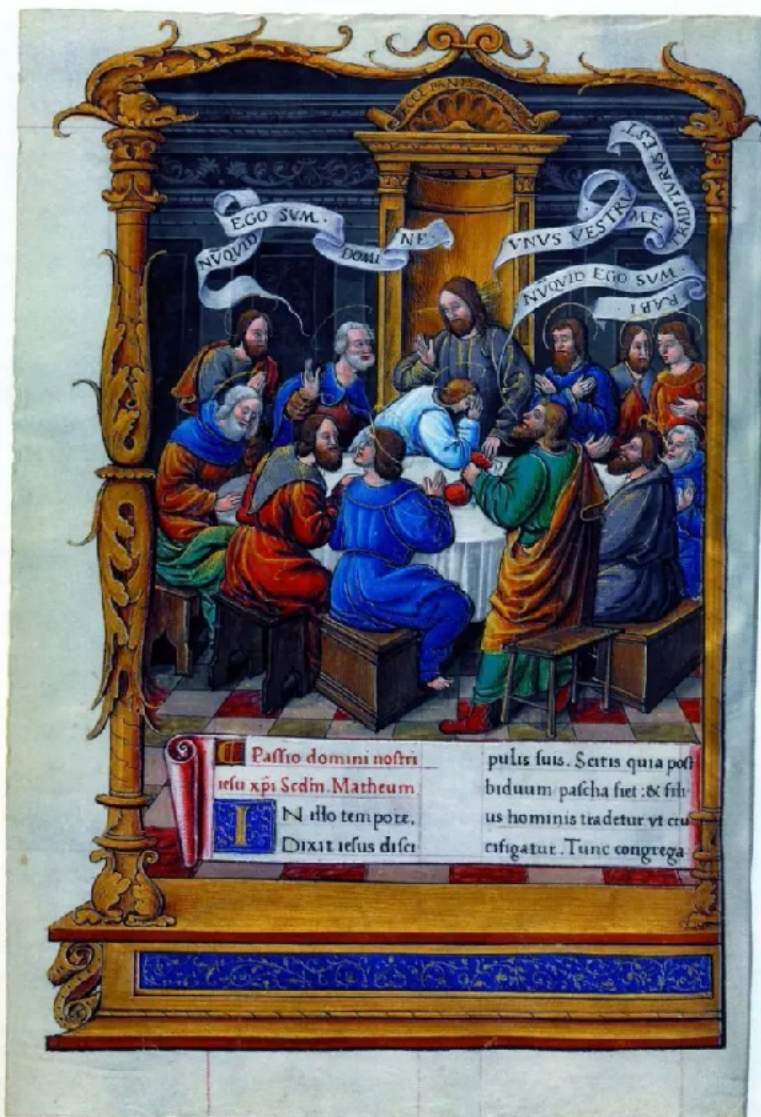 ECCE PANIS
NŨQUID EGO SUM DOMINE
VNUS VESTRŨ ME TRADITURUS EST
NŨQUID EGO SUM RABI
Passio domini nostri
iesu xp̃i Scdm̃ Matheum
IN illo tempore.
Dixit iesus disci
pulis suis. Scitis quia post
biduum pascha fiet: & fili
us hominis tradetur vt cru
cifigatur. Tunc congrega